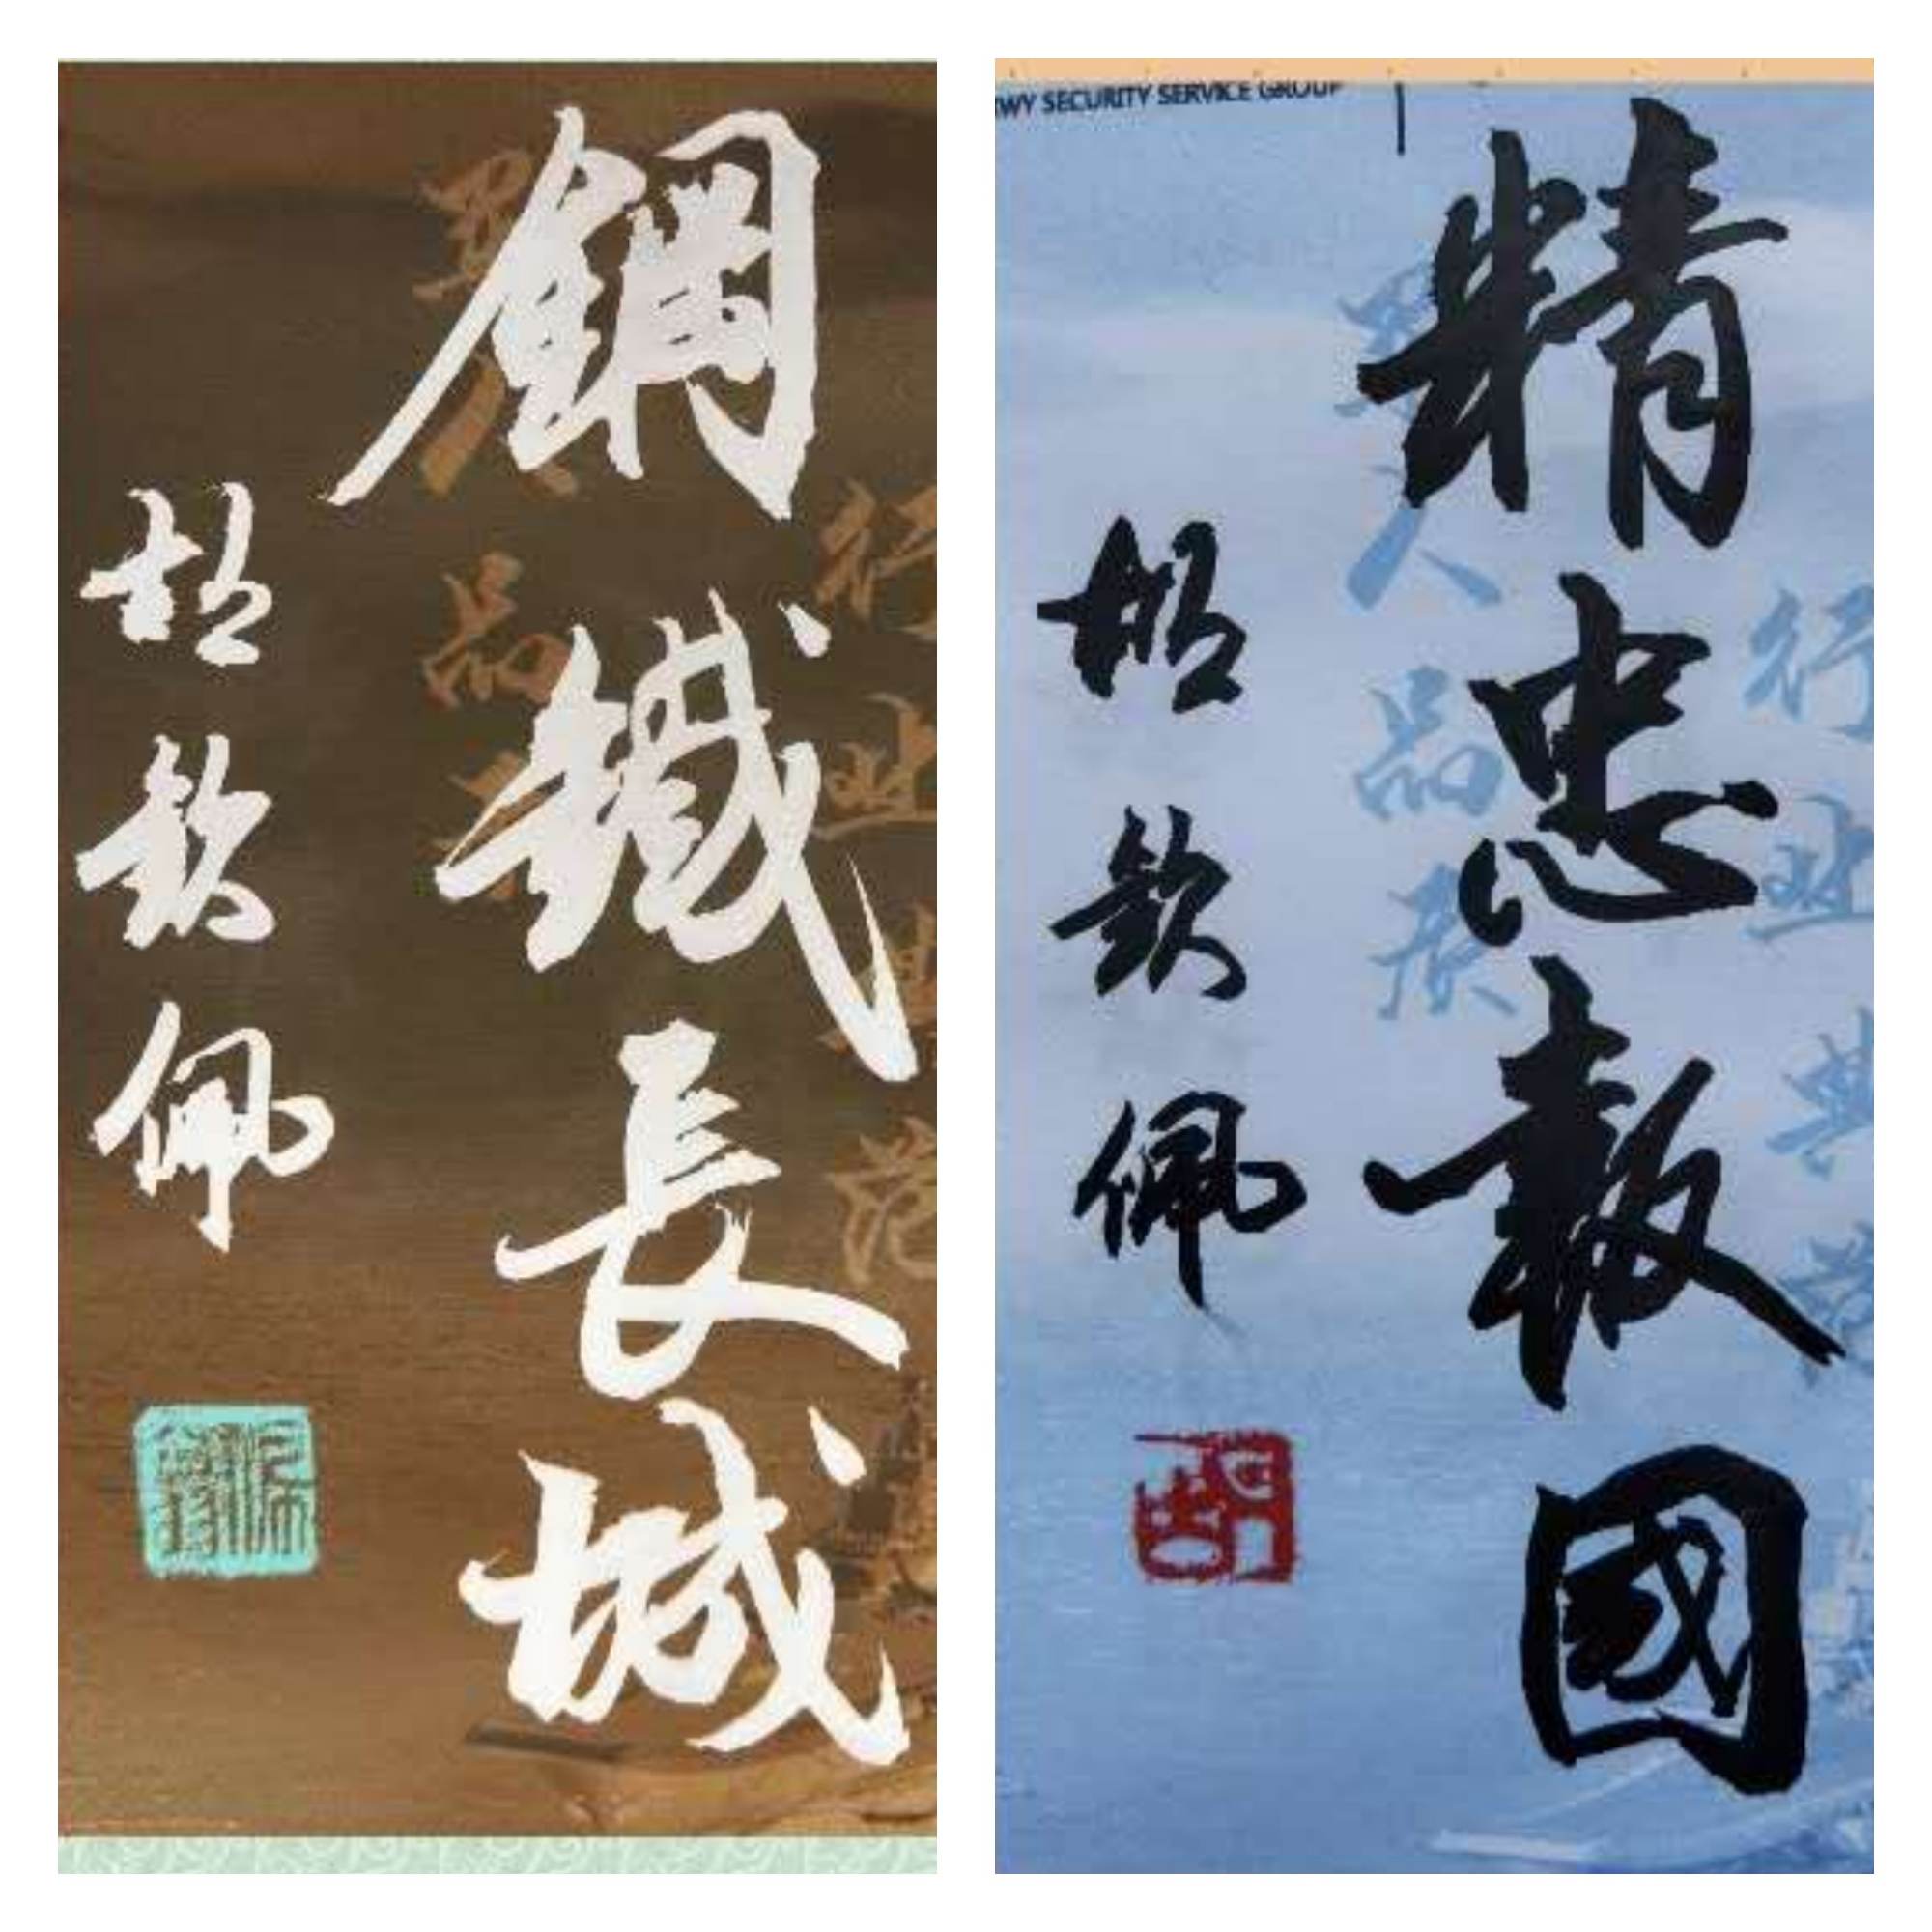 鋼鐵長城
胡欽佩
WY SECURITY SERVICE GROUP
精忠報國
胡欽佩
行业典范
人品质